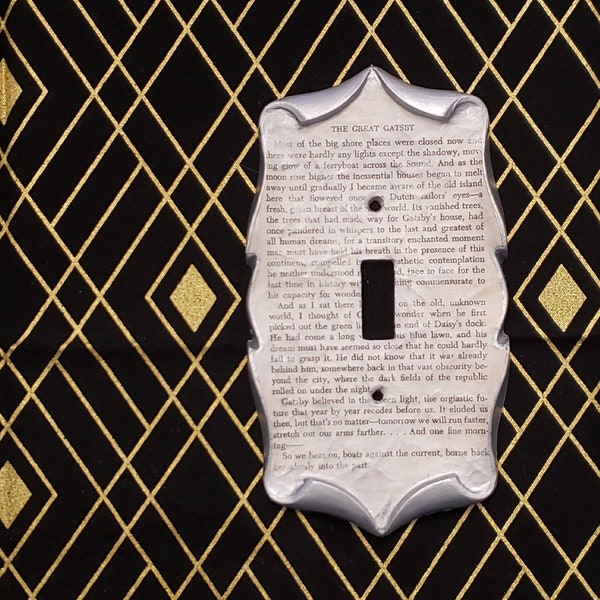 THE GREAT GATSBY
Most of the big shore places were closed now and
there were hardly any lights except the shadowy, mov-
ing glow of a ferryboat across the Sound. And as the
moon rose higher the inessential houses began to melt
away until gradually I became aware of the old island
here that flowered once Dutch sailors' eyes—a
fresh, green breast of the world. Its vanished trees,
the trees that had made way for Gatsby's house, had
once pandered in whispers to the last and greatest of
all human dreams; for a transitory enchanted moment
man must have held his breath in the presence of this
continent, compelled into contemplation
he neither understood face to face for the
last time in history commensurate to
his capacity for wonder
And as I sat there on the old, unknown
world, I thought of wonder when he first
picked out the green end of Daisy's dock.
He had come a long this blue lawn, and his
dream must have seemed so close that he could hardly
fail to grasp it. He did not know that it was already
behind him, somewhere back in that vast obscurity be-
yond the city, where the dark fields of the republic
rolled on under the night.
Gatsby believed in the green light, the orgiastic fu-
ture that year by year recedes before us. It eluded us
then, but that's no matter—tomorrow we will run faster,
stretch out our arms farther. . . . And one fine morn-
ing—
So we beat on, boats against the current, borne back
ceaselessly into the past.